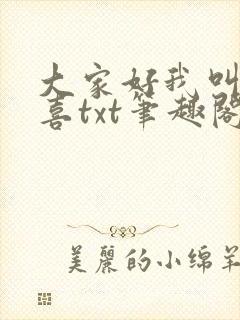 大家好我叫
喜txt笔趣阁
美丽的小绵羊